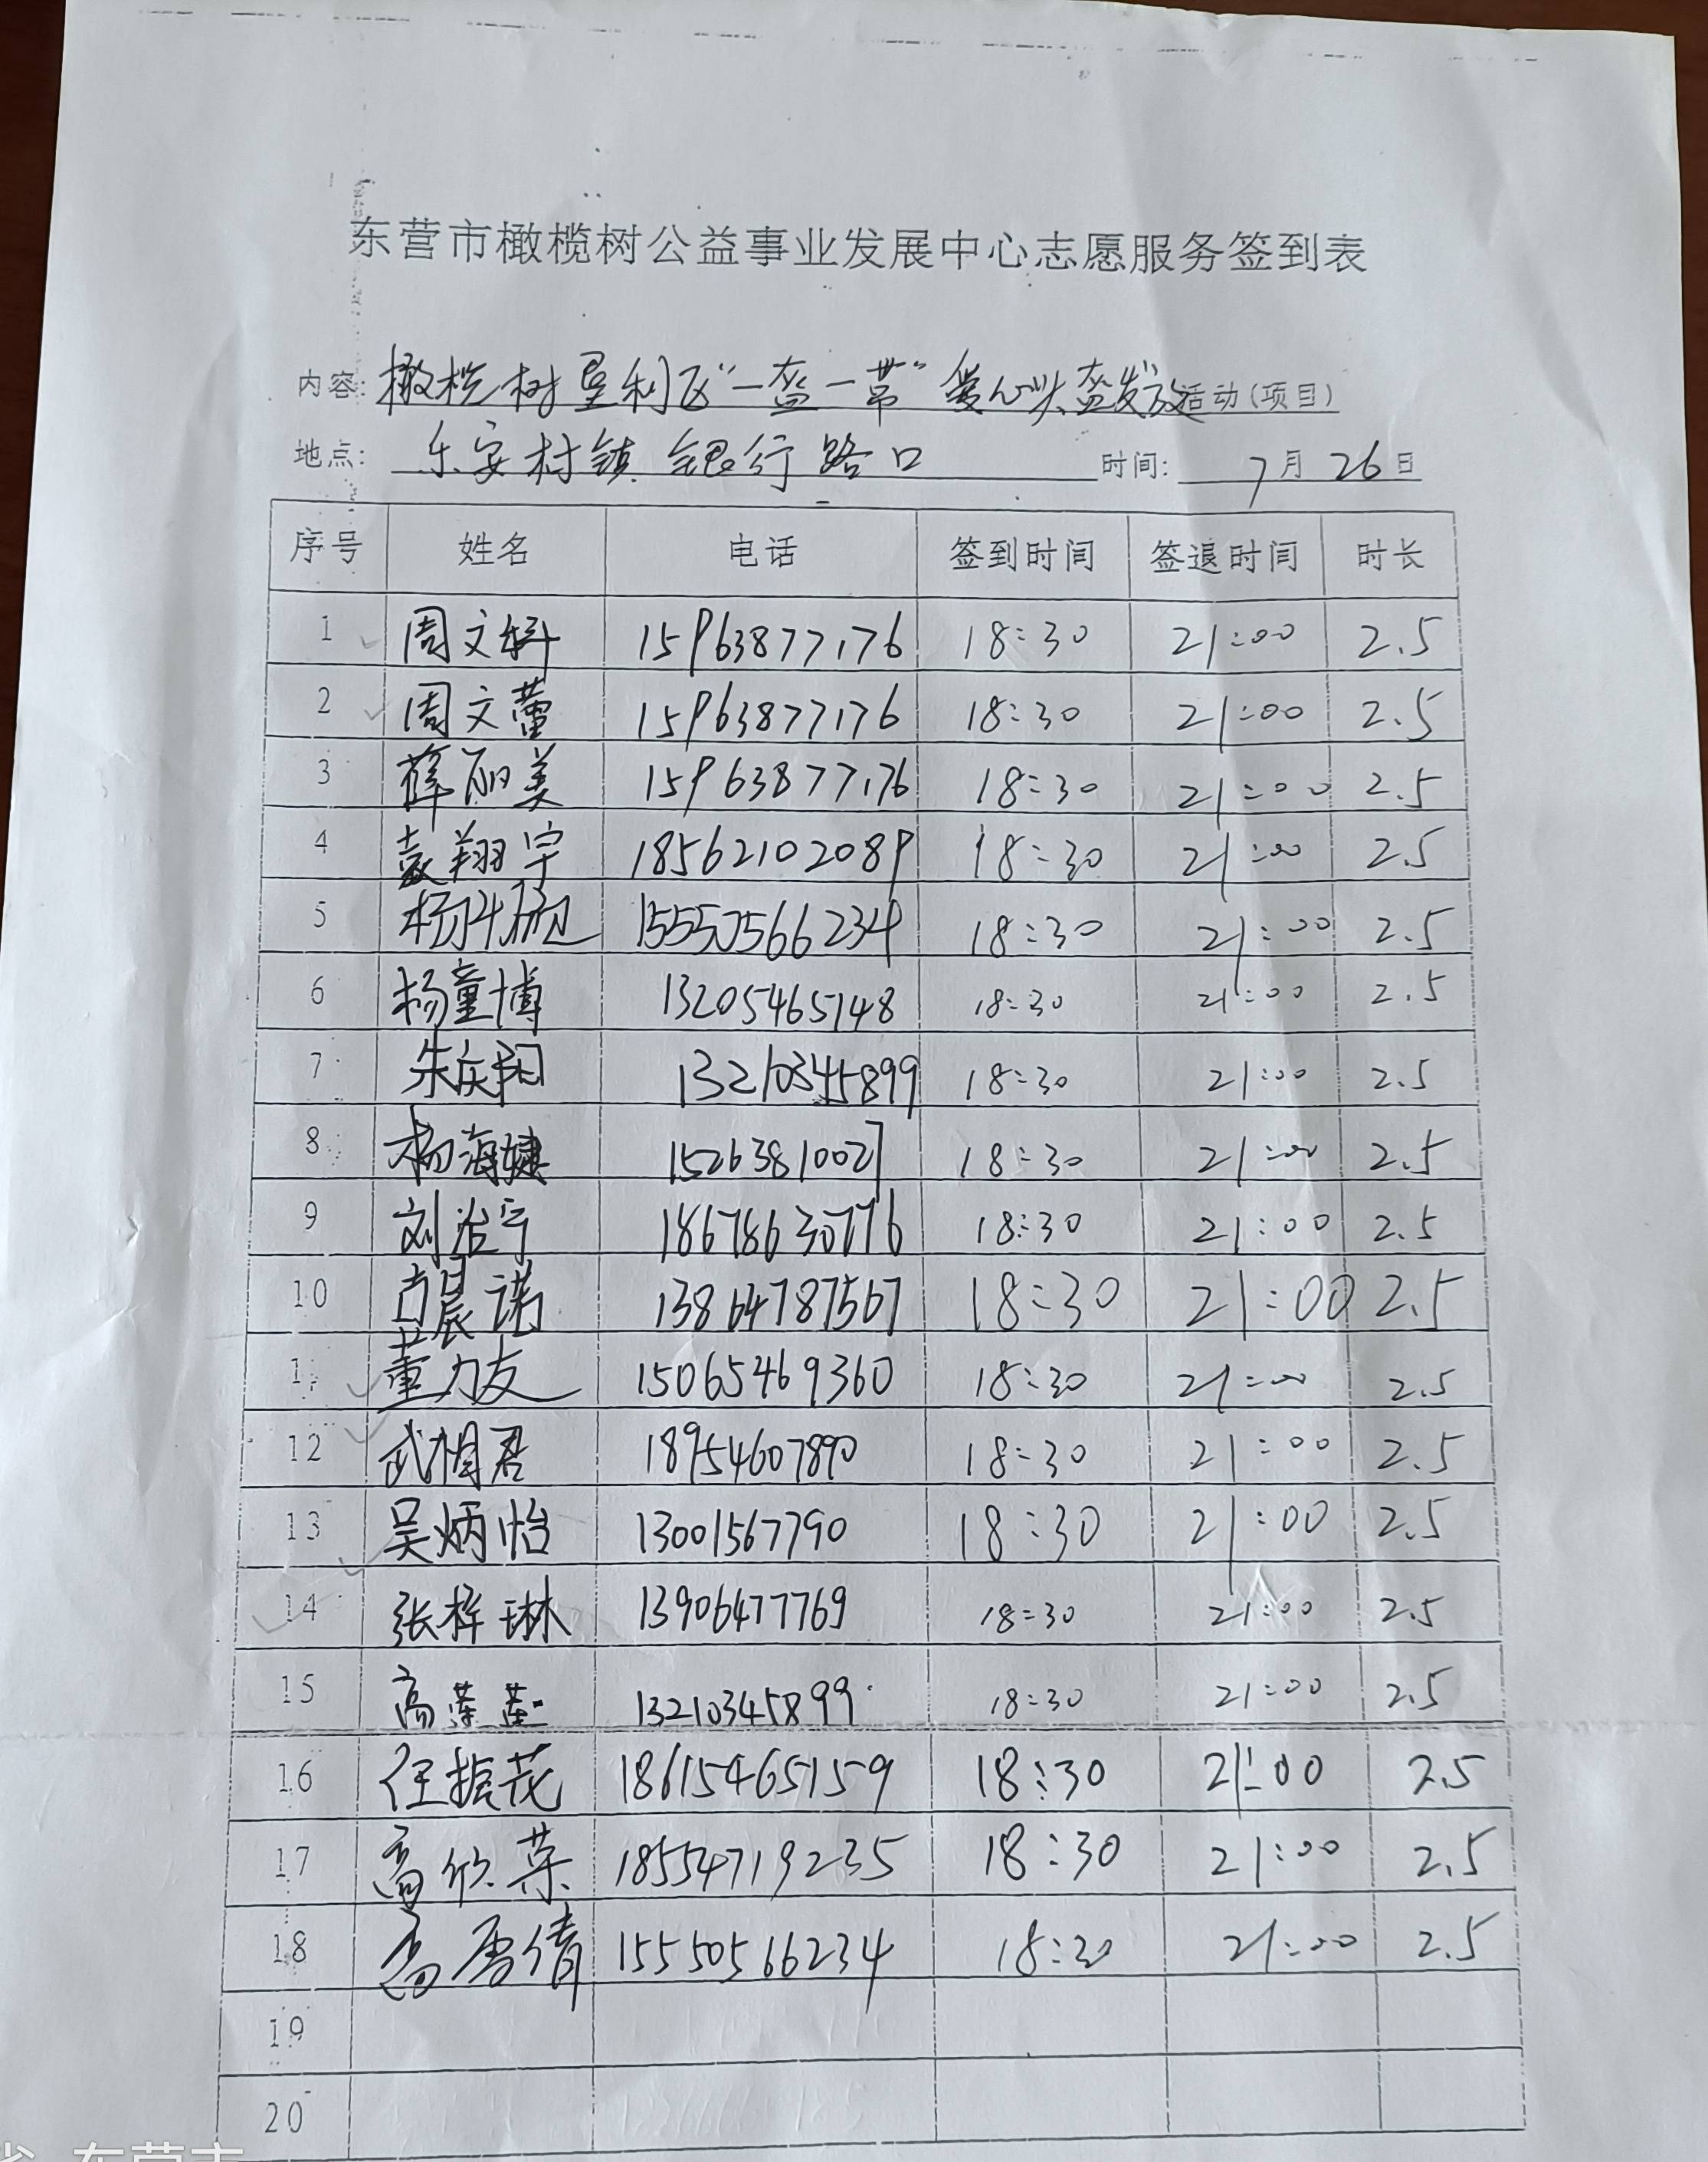 东营市橄榄树公益事业发展中心志愿服务签到表
内容: 橄榄树垦利区“一盔一带”爱心头盔发放活动(项目)
地点: 乐安村镇银行路口 时间: 7月26日
序号 姓名 电话 签到时间 签退时间 时长
1 周文 15963877176 18:30 21:00 2.5
2 周文蕾 15963877176 18:30 21:00 2.5
3 薛丽美 15963877176 18:30 21:00 2.5
4 袁翔宇 18562102089 18:30 21:00 2.5
5 杨 15550566234 18:30 21:00 2.5
6 杨童博 13205465148 18:30 21:00 2.5
7 朱庆阳 13210345899 18:30 21:00 2.5
8 杨海婕 15263810027 18:30 21:00 2.5
9 刘治宁 18678630776 18:30 21:00 2.5
10 古晨诺 13864787567 18:30 21:00 2.5
11 董力友 15065469360 18:30 21:00 2.5
12 武相君 18954607890 18:30 21:00 2.5
13 吴炳怡 13001567790 18:30 21:00 2.5
14 张梓琳 13906477769 18:30 21:00 2.5
15 高 13210345899 18:30 21:00 2.5
16 任振花 18615465159 18:30 21:00 2.5
17 高欣荣 18554719235 18:30 21:00 2.5
18 高雪倩 15550566234 18:30 21:00 2.5
19
20
省 东营市